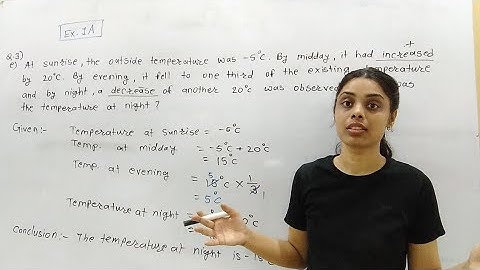 Ex. 1A
Q.3)
e) At sunrise, the outside temperature was -5°C. By midday, it had increased +
by 20°C. By evening, it fell to one third of the existing temperature
and by night, a decrease of another 20°C was observed was
the temperature at night?
Given:- Temperature at sunrise = -5°C
Temp. at midday = -5°C + 20°C
= 15°C
Temp. at evening = 15°C × 1/3 5 1
= 5°C
Temperature at night = 0°C
Conclusion:- The temperature at night is -15